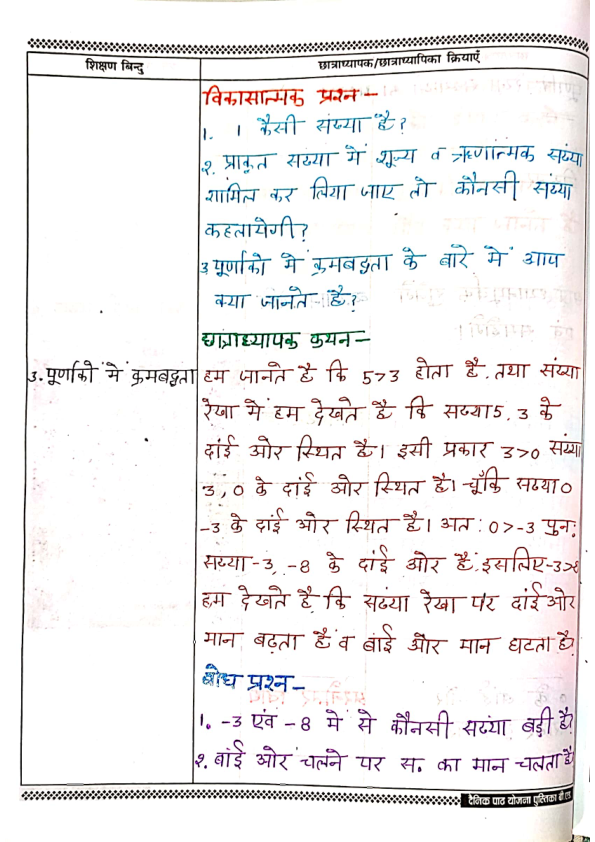 शिक्षण बिन्दु
छात्राध्यापक/छात्राध्यापिका क्रियाएँ
विकासात्मक प्रश्न—
1. 1 कैसी संख्या है?
2. प्राकृत सख्या में शून्य व ऋणात्मक संख्या
शामिल कर लिया जाए तो कौनसी संख्या
कहलायेगी?
3 पूर्णाकों में क्रमबद्धता के बारे में आप
क्या जानते है?
छात्राध्यापक कथन—
3. पूर्णाकों में क्रमबद्धता
हम जानते है कि 5>3 होता है. तथा संख्या
रेखा में हम देखते है कि सख्या 5, 3 के
दांई ओर स्थित है। इसी प्रकार 3>0 संख्या
3, 0 के दांई ओर स्थित है। चूँकि सख्या 0
-3 के दांई ओर स्थित है। अत: 0>-3 पुन:
सख्या -3, -8 के दांई ओर है. इसलिए -3>-8
हम देखते है कि सख्या रेखा पर दांई ओर
मान बढ़ता है व बांई ओर मान घटता है।
बोध प्रश्न—
1. -3 एवं -8 में से कौनसी सख्या बड़ी है?
2. बांई ओर चलने पर स. का मान चलता है
दैनिक पाठ योजना पुस्तिका बी.एड.